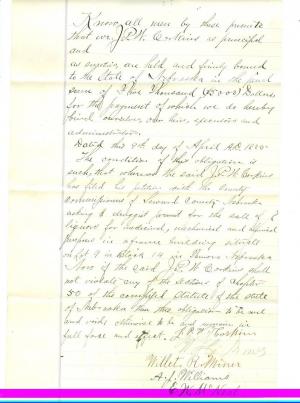 Know all men by these presents
that we J.P.W. Corkins as principal
and
as sureties, are held and firmly bound
to the State of Nebraska in the penal
sum of Five Thousand ($5000) Dollars
for the payment of which we do hereby
bind ourselves, our heirs, executors and
administrators.
Dated this 9th day of April A.D.
The condition of this obligation is
such, that whereas the said J.P.W. Corkins
has filed his petition with the County
Commissioners of Seward County, Nebraska
asking a druggist permit for the sale of
liquors for medicinal, mechanical and chemical
purposes in a frame building situate
on Lot 9 in Block 14 in Nebraska
Now if the said J.P.W. Corkins shall
not violate any of the sections of Chapter
50 of the compiled statutes of the state
of Nebraska then this obligation to be null
and void, otherwise to be and remain in
full force and effect. J.P.W. Corkins
Willet R. Miner
A.J. Williams